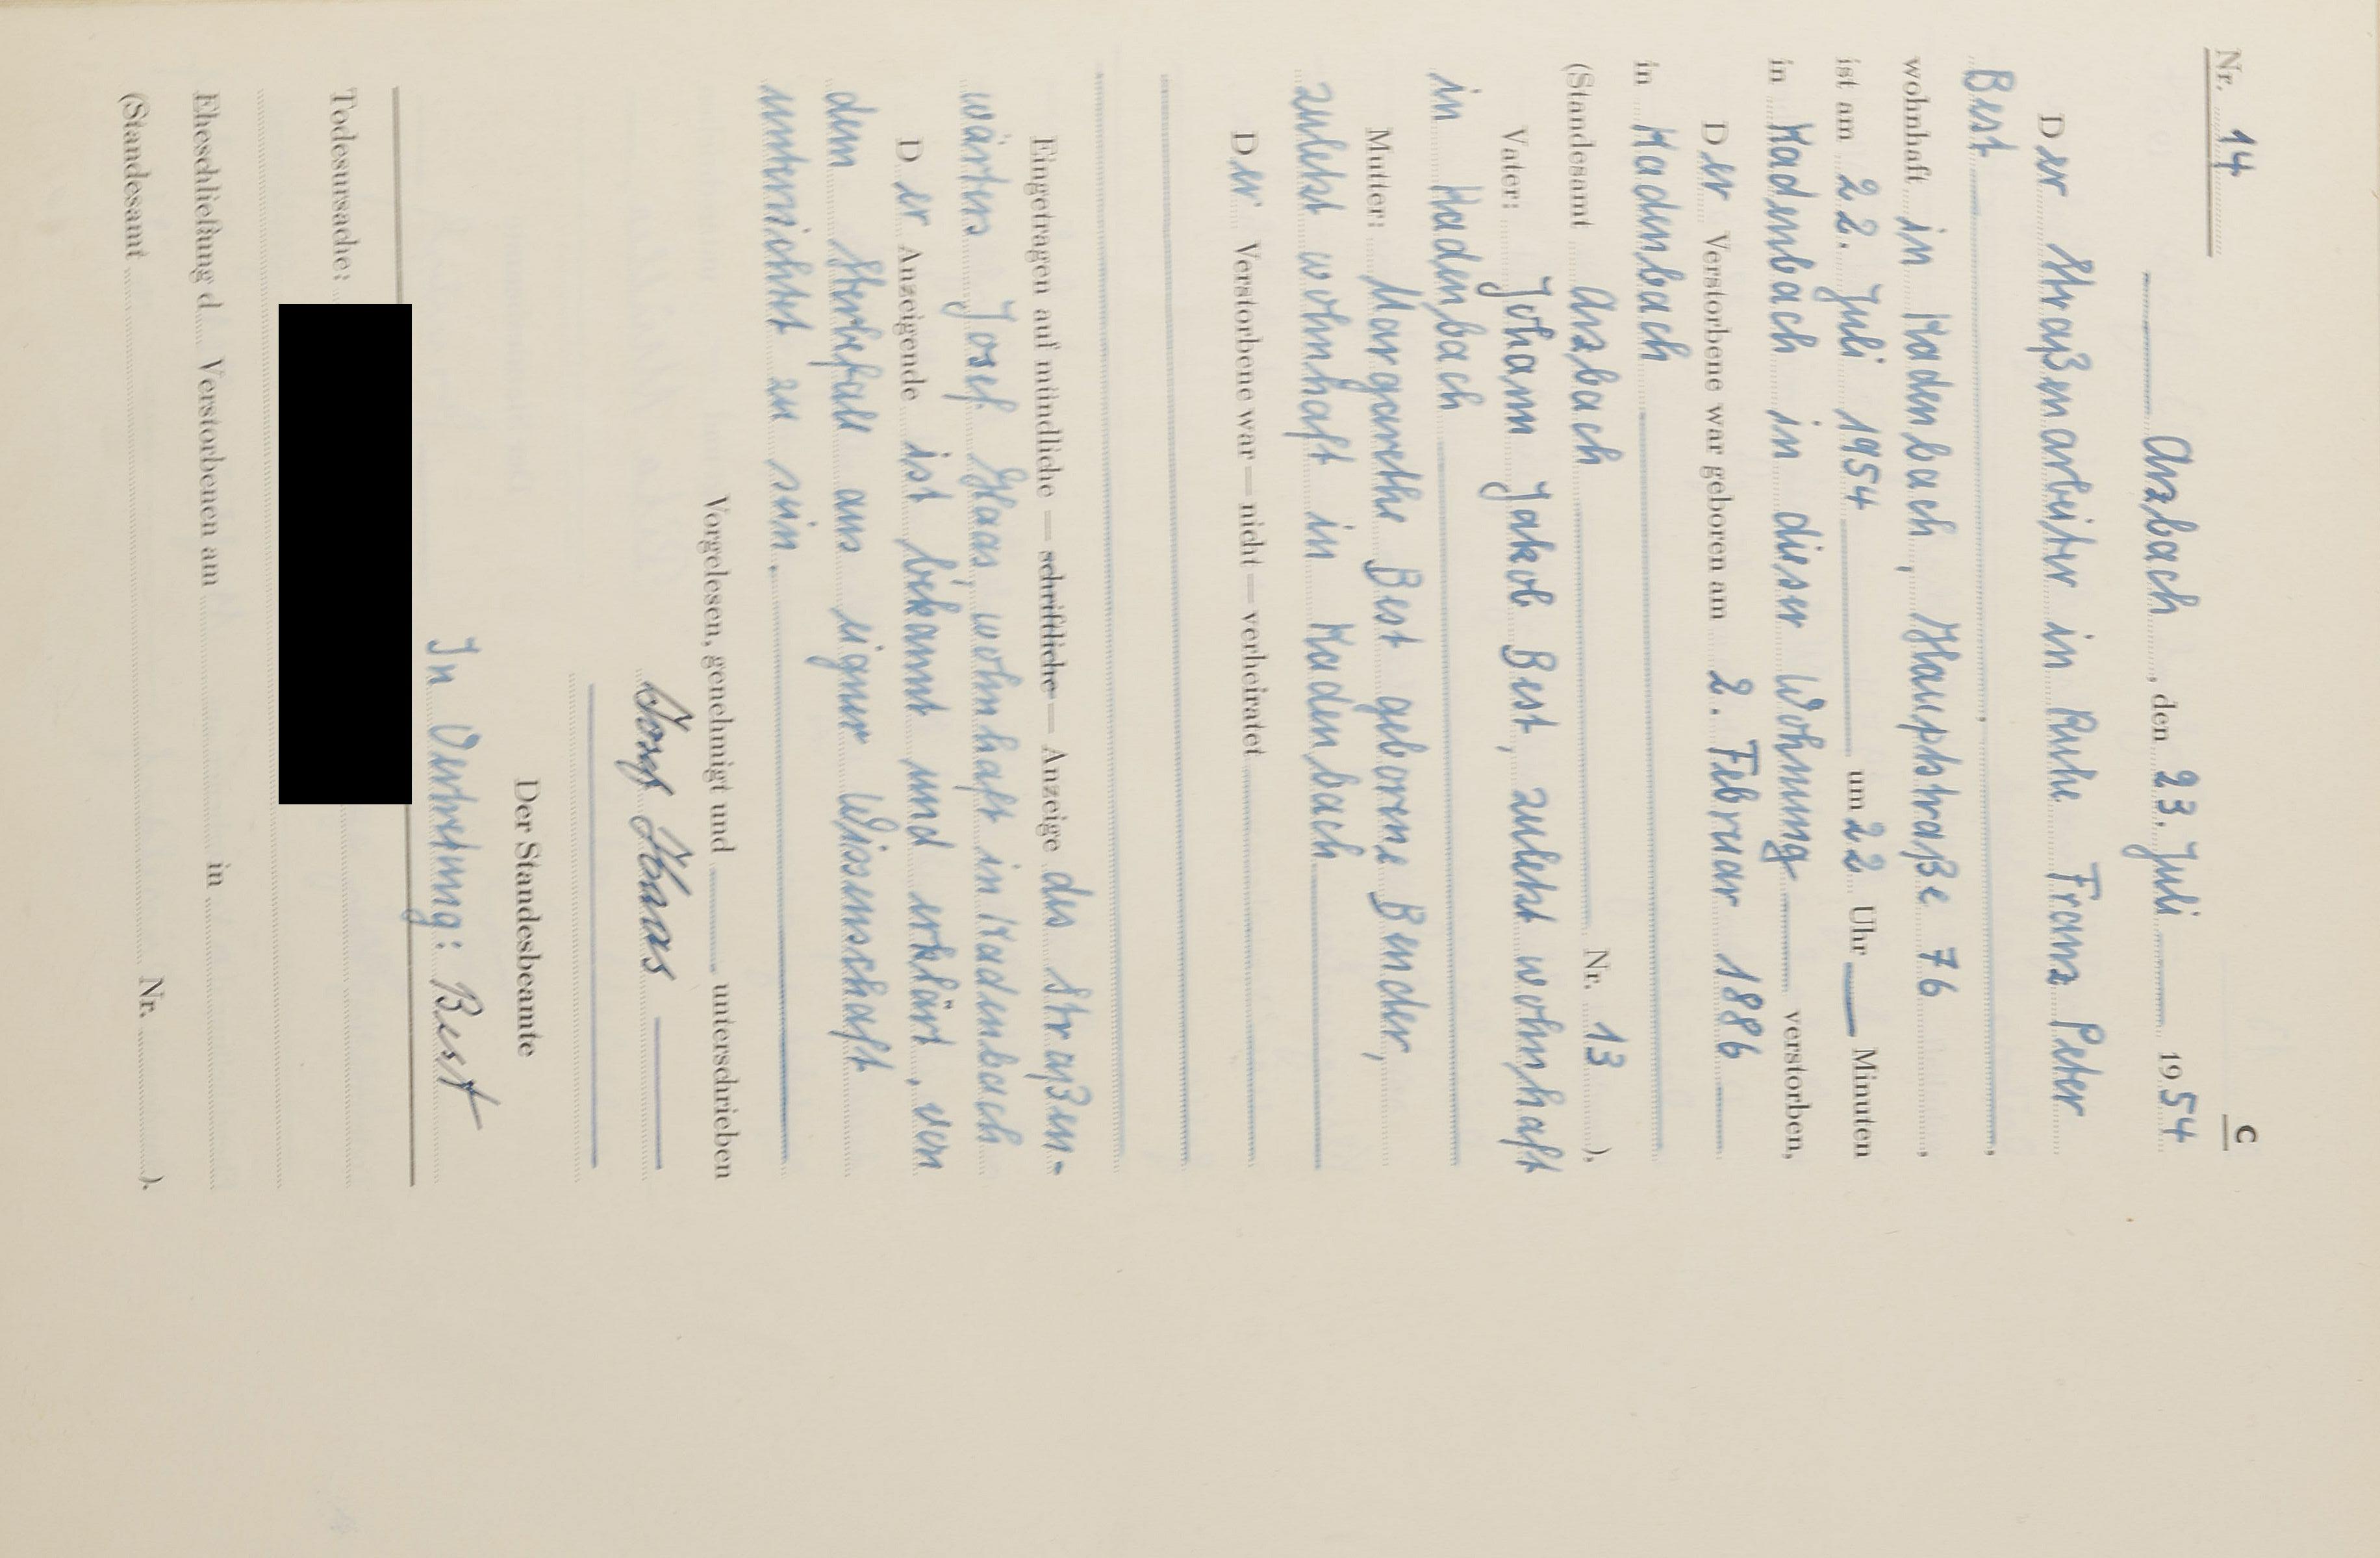 C
Nr. 14
Arzbach, den 23. Juli 1954
Der Straßenarbeiter in Ruhe Franz Peter
Best,
wohnhaft in Kadenbach, Hauptstraße 76,
ist am 22. Juli 1954 um 22 Uhr Minuten
in Kadenbach in dieser Wohnung verstorben,
Der Verstorbene war geboren am 2. Februar 1886
in Kadenbach
(Standesamt Arzbach Nr. 13 ).
Vater: Johann Jakob Best, zuletzt wohnhaft
in Kadenbach
Mutter: Margarethe Best geborene Bender,
zuletzt wohnhaft in Kadenbach
Der Verstorbene war — nicht — verheiratet
Eingetragen auf mündliche — schriftliche — Anzeige des Straßen-
wärters Josef Haas, wohnhaft in Kadenbach
Der Anzeigende ist bekannt und erklärt, von
dem Sterbefall aus eigener Wissenschaft
unterrichtet zu sein.
Vorgelesen, genehmigt und unterschrieben
Josef Haas
Der Standesbeamte
In Vertretung: Best
Todesursache:
Eheschließung d Verstorbenen am in
(Standesamt Nr. ).